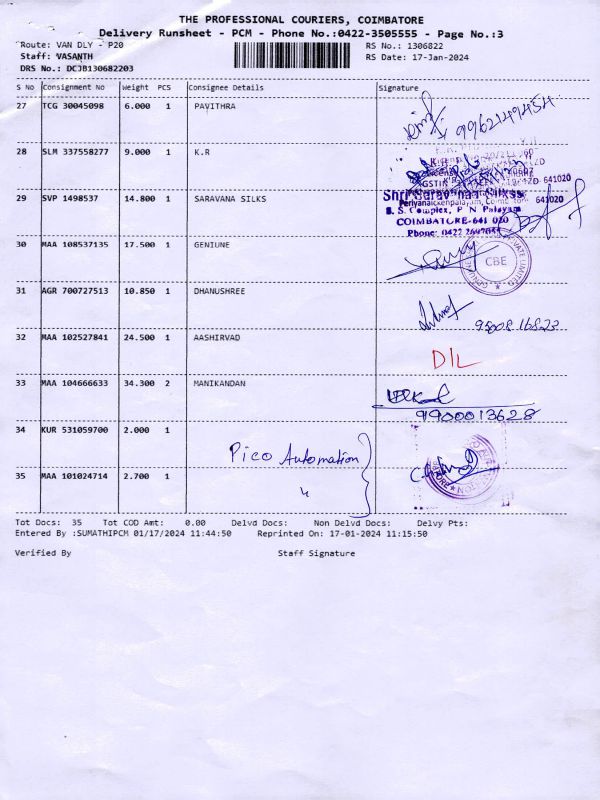 THE PROFESSIONAL COURIERS, COIMBATORE
Delivery Runsheet - PCM - Phone No.:0422-3505555 - Page No.:3
Route: VAN DLY - P20 RS No.: 1306822
Staff: VASANTH RS Date: 17-Jan-2024
DRS No.: DCJB130682203
S No Consignment No Weight PCS Consignee Details Signature
27 TCG 30045098 6.000 1 PAVITHRA
9962149454
28 SLM 337558277 9.000 1 K.R
641020
29 SVP 1498537 14.800 1 SARAVANA SILKS
Shri Saravanaa Silkss 641020
Periyanaickenpalayam,
B. S. Complex, P N Palayam
COIMBATORE-641 020
Phone: 0422
30 MAA 108537135 17.500 1 GENIUNE
CBE
PRIVATE LIMITED
31 AGR 700727513 10.850 1 DHANUSHREE
95008 16823
32 MAA 102527841 24.500 1 AASHIRVAD
D/L
33 MAA 104666633 34.300 2 MANIKANDAN
9900013628
34 KUR 531059700 2.000 1
Pico Automation
35 MAA 101024714 2.700 1
〃
Tot Docs: 35 Tot COD Amt: 0.00 Delvd Docs: Non Delvd Docs: Delvy Pts:
Entered By :SUMATHIPCM 01/17/2024 11:44:50 Reprinted On: 17-01-2024 11:15:50
Verified By Staff Signature